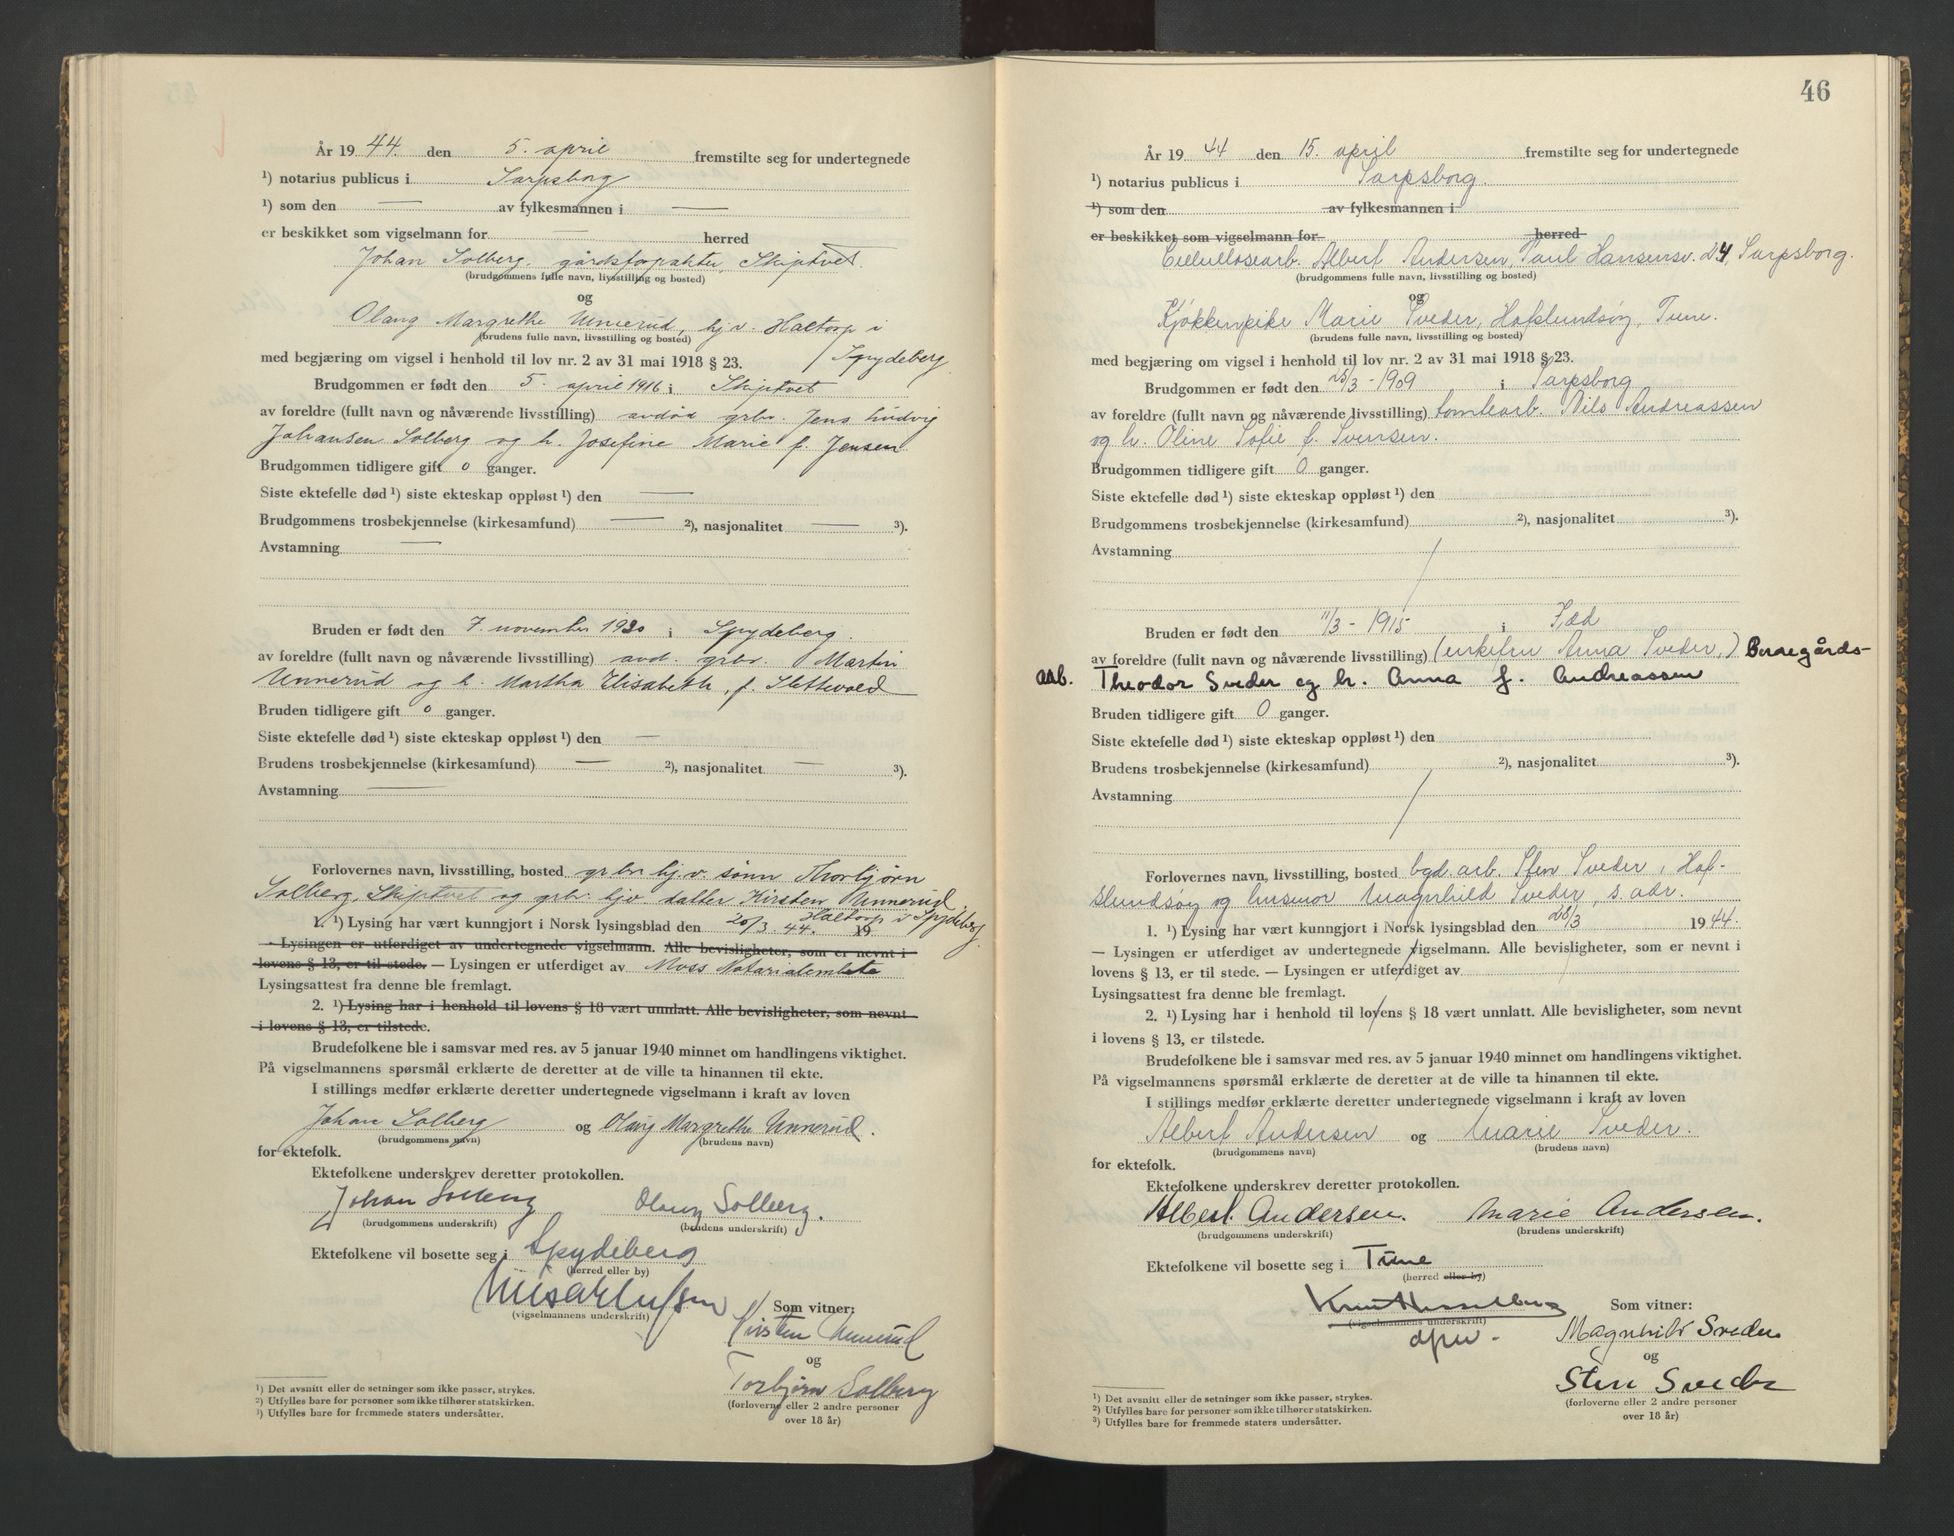 År 1944. den 5. april fremstilte seg for undertegnede
¹) notarius publicus i Sarpsborg
¹) som den — av fylkesmannen i —
er beskikket som vigselmann for — herred
Johan Solberg, gårdsforpakter, Skiptvet
(brudgommens fulle navn, livsstilling og bosted)
og
Olaug Margrethe Unnerud, hj.v. Haltorp i
(brudens fulle navn, livsstilling og bosted)
med begjæring om vigsel i henhold til lov nr. 2 av 31 mai 1918 § 23. / Spydeberg
Brudgommen er født den 5. april 1916 i Skiptvet
av foreldre (fullt navn og nåværende livsstilling) avdød grbr. Jens Ludvig
Johansen Solberg og h. Josefine Marie f. Jensen
Brudgommen tidligere gift 0 ganger.
Siste ektefelle død ¹) siste ekteskap oppløst ¹) den —
Brudgommens trosbekjennelse (kirkesamfund) — ²), nasjonalitet — ³).
Avstamning —
Bruden er født den 7. november 1920 i Spydeberg.
av foreldre (fullt navn og nåværende livsstilling) avd. grbr. Martin
Unnerud og h. Martha Elisabeth, f. Slettevold
Bruden tidligere gift 0 ganger.
Siste ektefelle død ¹) siste ekteskap oppløst ¹) den —
Brudens trosbekjennelse (kirkesamfund) — ²), nasjonalitet — ³).
Avstamning —
Forlovernes navn, livsstilling, bosted grbr hj.v. sønn Thorbjørn
Solberg, Skiptvet og grbr. hjv. datter Kirsten Unnerud,
Haltorp i Spydeberg
1. ¹) Lysing har vært kunngjort i Norsk lysingsblad den 20/3 44. 19
— Lysingen er utferdiget av undertegnede vigselmann. Alle bevisligheter, som er nevnt i
lovens § 13, er til stede. — Lysingen er utferdiget av Moss Notarialembete
Lysingsattest fra denne ble fremlagt.
2. ¹) Lysing har i henhold til lovens § 18 vært unnlatt. Alle bevisligheter, som nevnt
i lovens § 13, er tilstede.
Brudefolkene ble i samsvar med res. av 5 januar 1940 minnet om handlingens viktighet.
På vigselmannens spørsmål erklærte de deretter at de ville ta hinannen til ekte.
I stillings medfør erklærte deretter undertegnede vigselmann i kraft av loven
Johan Solberg og Olaug Margrethe Unnerud.
(brudgommens navn) (brudens navn)
for ektefolk.
Ektefolkene underskrev deretter protokollen.
Johan Solberg Olaug Solberg.
(brudgommens underskrift) (brudens underskrift)
Ektefolkene vil bosette seg i Spydeberg
(herred eller by)
(vigselmannens underskrift) Som vitner:
Kirsten Unnerud
og
Torbjørn Solberg
(forloverne eller 2 andre personer
over 18 år)
¹) Det avsnitt eller de setninger som ikke passer, strykes.
²) Utfylles bare for personer som ikke tilhører statskirken.
³) Utfylles bare for fremmede staters undersåtter.
46
År 1944 den 15. april fremstilte seg for undertegnede
¹) notarius publicus i Sarpsborg.
¹) som den av fylkesmannen i
er beskikket som vigselmann for herred
Cellulosearb. Albert Andersen, Paul Hansensv. 24, Sarpsborg.
(brudgommens fulle navn, livsstilling og bosted)
og
Kjøkkenpike Marie Sveder, Hafslundsøy, Tune.
(brudens fulle navn, livsstilling og bosted)
med begjæring om vigsel i henhold til lov nr. 2 av 31 mai 1918 § 23.
Brudgommen er født den 25/3 - 1909 i Sarpsborg
av foreldre (fullt navn og nåværende livsstilling) tomtearb. Nils Andreassen
og h. Oline Sofie f. Svensen.
Brudgommen tidligere gift 0 ganger.
Siste ektefelle død ¹) siste ekteskap oppløst ¹) den
Brudgommens trosbekjennelse (kirkesamfund) ²), nasjonalitet ³).
Avstamning
Bruden er født den 11/3 - 1915 i Idd
av foreldre (fullt navn og nåværende livsstilling) (enkefru Anna Sveder,) Bernegårds-
arb. Theodor Sveder og h. Anna f. Andreassen
Bruden tidligere gift 0 ganger.
Siste ektefelle død ¹) siste ekteskap oppløst ¹) den
Brudens trosbekjennelse (kirkesamfund) ²), nasjonalitet ³).
Avstamning
Forlovernes navn, livsstilling, bosted bgd.arb. Sten Sveder, Haf-
slundsøy og husmor Magnhild Sveder, s. adr.
1. ¹) Lysing har vært kunngjort i Norsk lysingsblad den 28/3 1944.
— Lysingen er utferdiget av undertegnede vigselmann. Alle bevisligheter, som er nevnt i
lovens § 13, er til stede. — Lysingen er utferdiget av
Lysingsattest fra denne ble fremlagt.
2. ¹) Lysing har i henhold til lovens § 18 vært unnlatt. Alle bevisligheter, som nevnt
i lovens § 13, er tilstede.
Brudefolkene ble i samsvar med res. av 5 januar 1940 minnet om handlingens viktighet.
På vigselmannens spørsmål erklærte de deretter at de ville ta hinannen til ekte.
I stillings medfør erklærte deretter undertegnede vigselmann i kraft av loven
Albert Andersen og Marie Sveder.
(brudgommens navn) (brudens navn)
for ektefolk.
Ektefolkene underskrev deretter protokollen.
Albert Andersen. Marie Andersen.
(brudgommens underskrift) (brudens underskrift)
Ektefolkene vil bosette seg i Tune
(herred eller by)
(vigselmannens underskrift) Som vitner:
Magnhild Sveder
og
Sten Sveder
(forloverne eller 2 andre personer
over 18 år)
¹) Det avsnitt eller de setninger som ikke passer, strykes.
²) Utfylles bare for personer som ikke tilhører statskirken.
³) Utfylles bare for fremmede staters undersåtter.